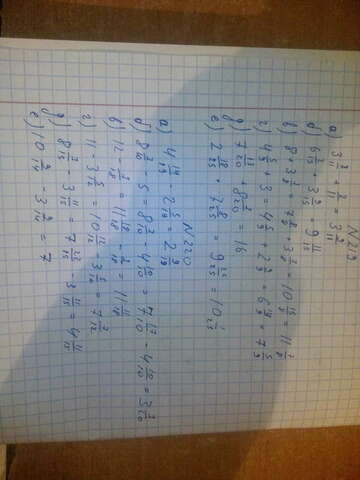 N 219
а) 3 2/11 + 7/11 = 3 9/11
б) 6 4/15 + 3 7/15 = 9 11/15
в) 8 + 3 7/8 = 7 8/8 + 3 7/8 = 10 15/8 = 11 7/8
г) 4 5/9 + 3 = 4 5/9 + 2 9/9 = 6 14/9 = 7 5/9
д) 7 11/20 + 8 9/20 = 16
е) 2 18/25 + 7 8/25 = 9 26/25 = 10 1/25
N 220
а) 4 14/19 - 2 5/19 = 2 9/19
б) 8 7/10 - 5 = 8 7/10 - 4 10/10 = 7 17/10 - 4 10/10 = 3 7/10
в) 12 - 7/18 = 11 18/18 - 7/18 = 11 11/18
г) 11 - 3 5/12 = 10 12/12 - 3 5/12 = 7 7/12
д) 8 7/15 - 3 11/15 = 7 22/15 3 11/15 = 4 11/15
е) 10 9/14 - 3 9/14 = 7